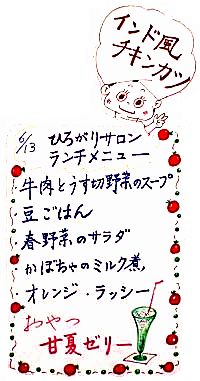 インド風
チキンカツ
6/13 ひろがりサロン
ランチメニュー
・牛肉とうす切野菜のスープ
・豆ごはん
・春野菜のサラダ
・かぼちゃのミルク煮
・オレンジ・ラッシー
おやつ
甘夏ゼリー